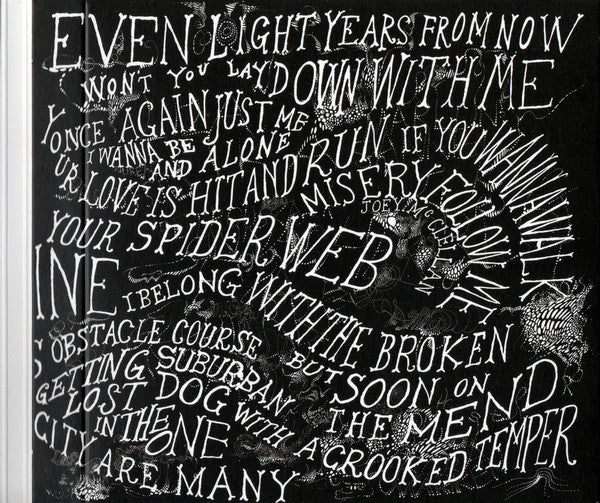 EVEN LIGHT YEARS FROM NOW
WON'T YOU LAY DOWN WITH ME
ONCE AGAIN JUST ME
I WANNA BE AND ALONE
UR LOVE IS HIT AND RUN IF YOU WANNA WALK
MISERY FOLLOW ME
YOUR SPIDER WEB
INE I BELONG WITH THE BROKEN
OBSTACLE COURSE BUT SOON ON
GETTING SUBURBAN THE MEND
LOST DOG WITH A CROOKED TEMPER
CITY IN THE ONE
ARE MANY